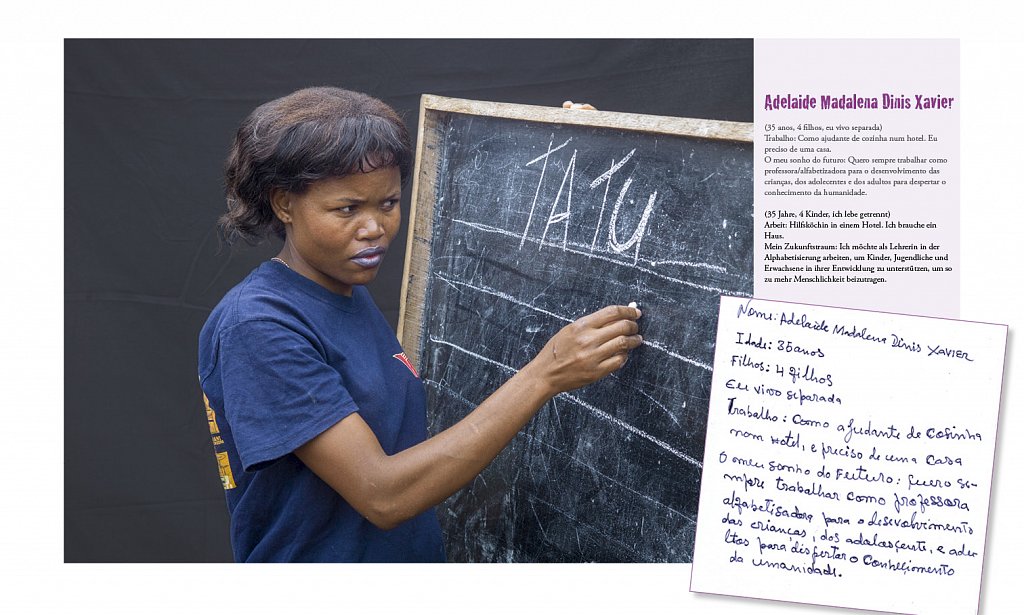 TATU
Adelaide Madalena Dinis Xavier
(35 anos, 4 filhos, eu vivo separada)
Trabalho: Como ajudante de cozinha num hotel. Eu
preciso de uma casa.
O meu sonho do futuro: Quero sempre trabalhar como
professora/alfabetizadora para o desenvolvimento das
crianças, dos adolecentes e dos adultos para despertar o
conhecimento da humanidade.
(35 Jahre, 4 Kinder, ich lebe getrennt)
Arbeit: Hilfsköchin in einem Hotel. Ich brauche ein
Haus.
Mein Zukunftstraum: Ich möchte als Lehrerin in der
Alphabetisierung arbeiten, um Kinder, Jugendliche und
Erwachsene in ihrer Entwicklung zu unterstützen, um so
zu mehr Menschlichkeit beizutragen.
Nome: Adelaide Madalena Dinis XAVIER
Idade: 35 anos
Filhos: 4 filhos
Eu vivo separada
Trabalho: Como ajudante de cosinha
num Hotel, e preciso de uma casa
O meu sonho do Futuro: quero se-
mpre trabalhar como professora
alfabetisadora para o desevolvimento
das crianças, dos adolasçente, e adu-
ltos para dispertar o conheçimento
da umanidade.